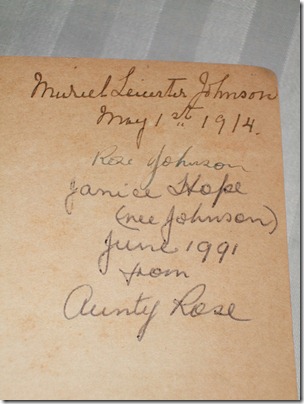 Muriel Leicester Johnson
May 1st 1914.
Rose Johnson
Janice Hope
(nee Johnson)
June 1991
from
Aunty Rose